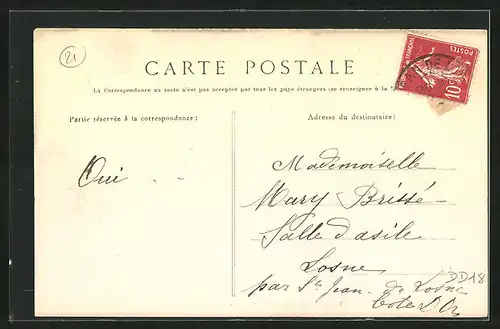 21
CARTE POSTALE
La Correspondance au recto n'est pas acceptée par tous les pays étrangers (se renseigner à la
Partie réservée à la correspondance :
Adresse du destinataire:
POSTES
10c
Oui . .
Mademoiselle
Mary Brissé
Salle d'asile
Losne
par St Jean de Losne
Cote D'Or
DD18